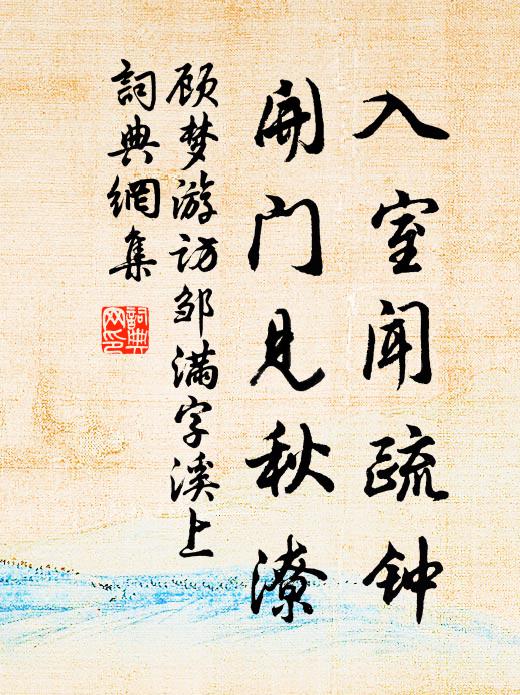 入室闻疏钟
開门见秋潦
顾梦游访邹满字溪上
詞典網集
詞典网印